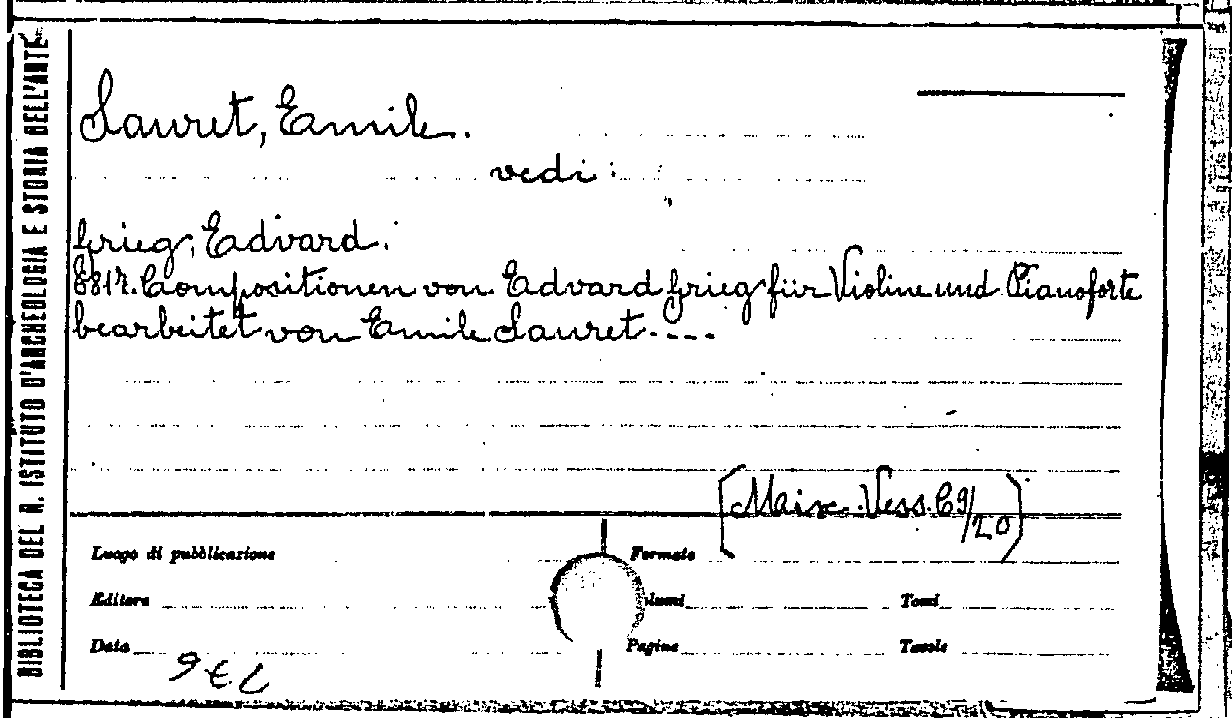 BIBLIOTECA DEL R. ISTITUTO D'ARCHEOLOGIA E STORIA DELL'ARTE
Sauret, Emile.
vedi:
Grieg, Edvard.
Compositionen von Edvard Grieg für Violine und Pianoforte
bearbeitet von Emile Sauret ----
Vess. C 9/20)
Luogo di pubblicazione
Formato
Editore
Tomi
Data
Pagine
Tavole